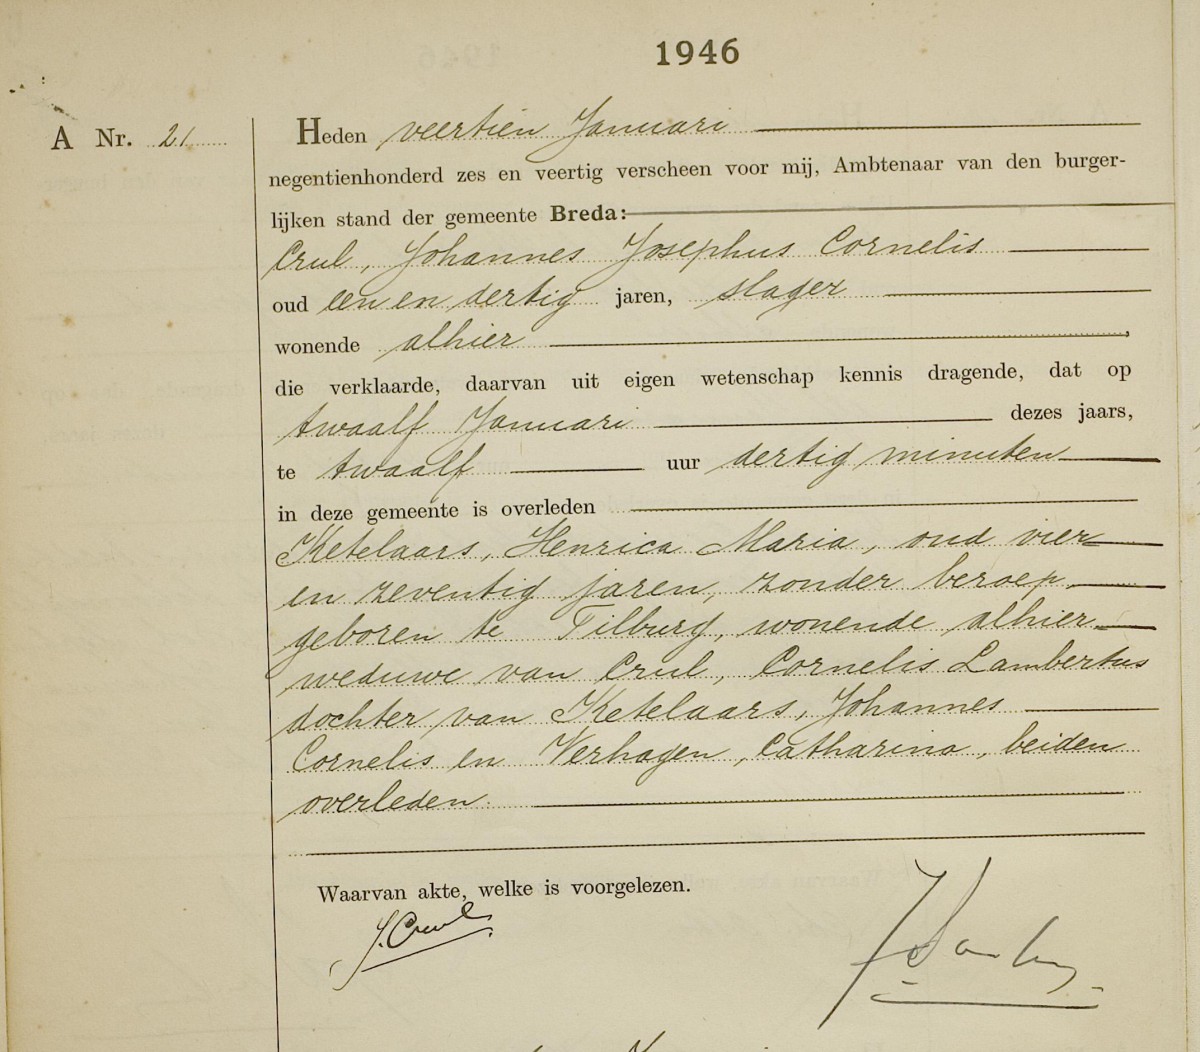 1946
A Nr. 21
Heden veertien Januari
negentienhonderd zes en veertig verscheen voor mij, Ambtenaar van den burger-
lijken stand der gemeente Breda:
Crul, Johannes Josephus Cornelis
oud een en dertig jaren, slager
wonende alhier,
die verklaarde, daarvan uit eigen wetenschap kennis dragende, dat op
twaalf Januari dezes jaars,
te twaalf uur dertig minuten
in deze gemeente is overleden
Ketelaars, Henrica Maria, oud vier
en zeventig jaren, zonder beroep,
geboren te Tilburg, wonende alhier
weduwe van Crul, Cornelis Lambertus
dochter van Ketelaars, Johannes
Cornelis en Verhagen, Catharina, beiden
overleden
Waarvan akte, welke is voorgelezen.
J. Crul